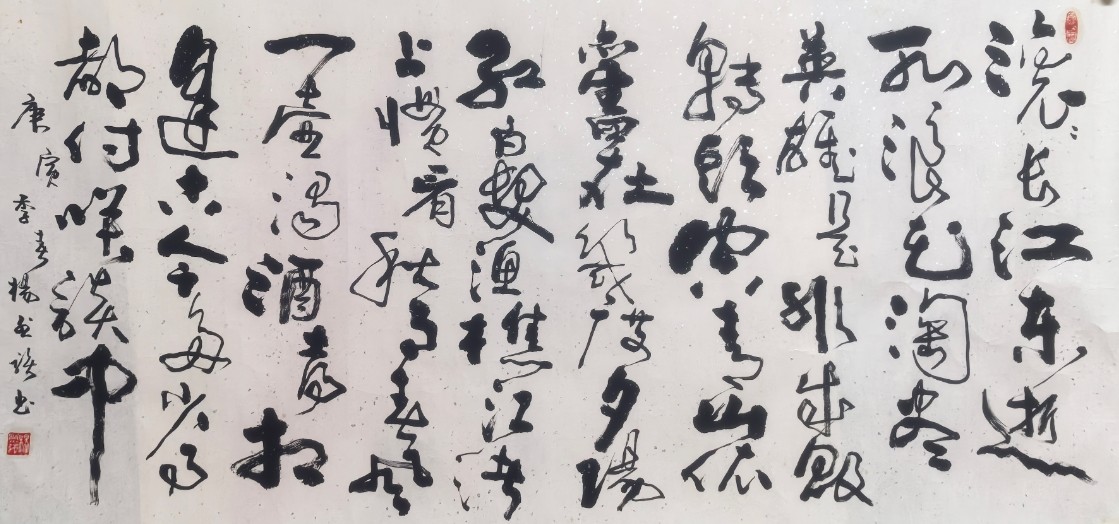 滚滚长江东逝
水浪花淘尽
英雄是非成败
转头空青山依
舊在幾度夕陽
红白髮漁樵江渚
上惯看秋月春风
一壶濁酒喜相
逢古今多少事
都付笑谈中
庚寅季春杨书